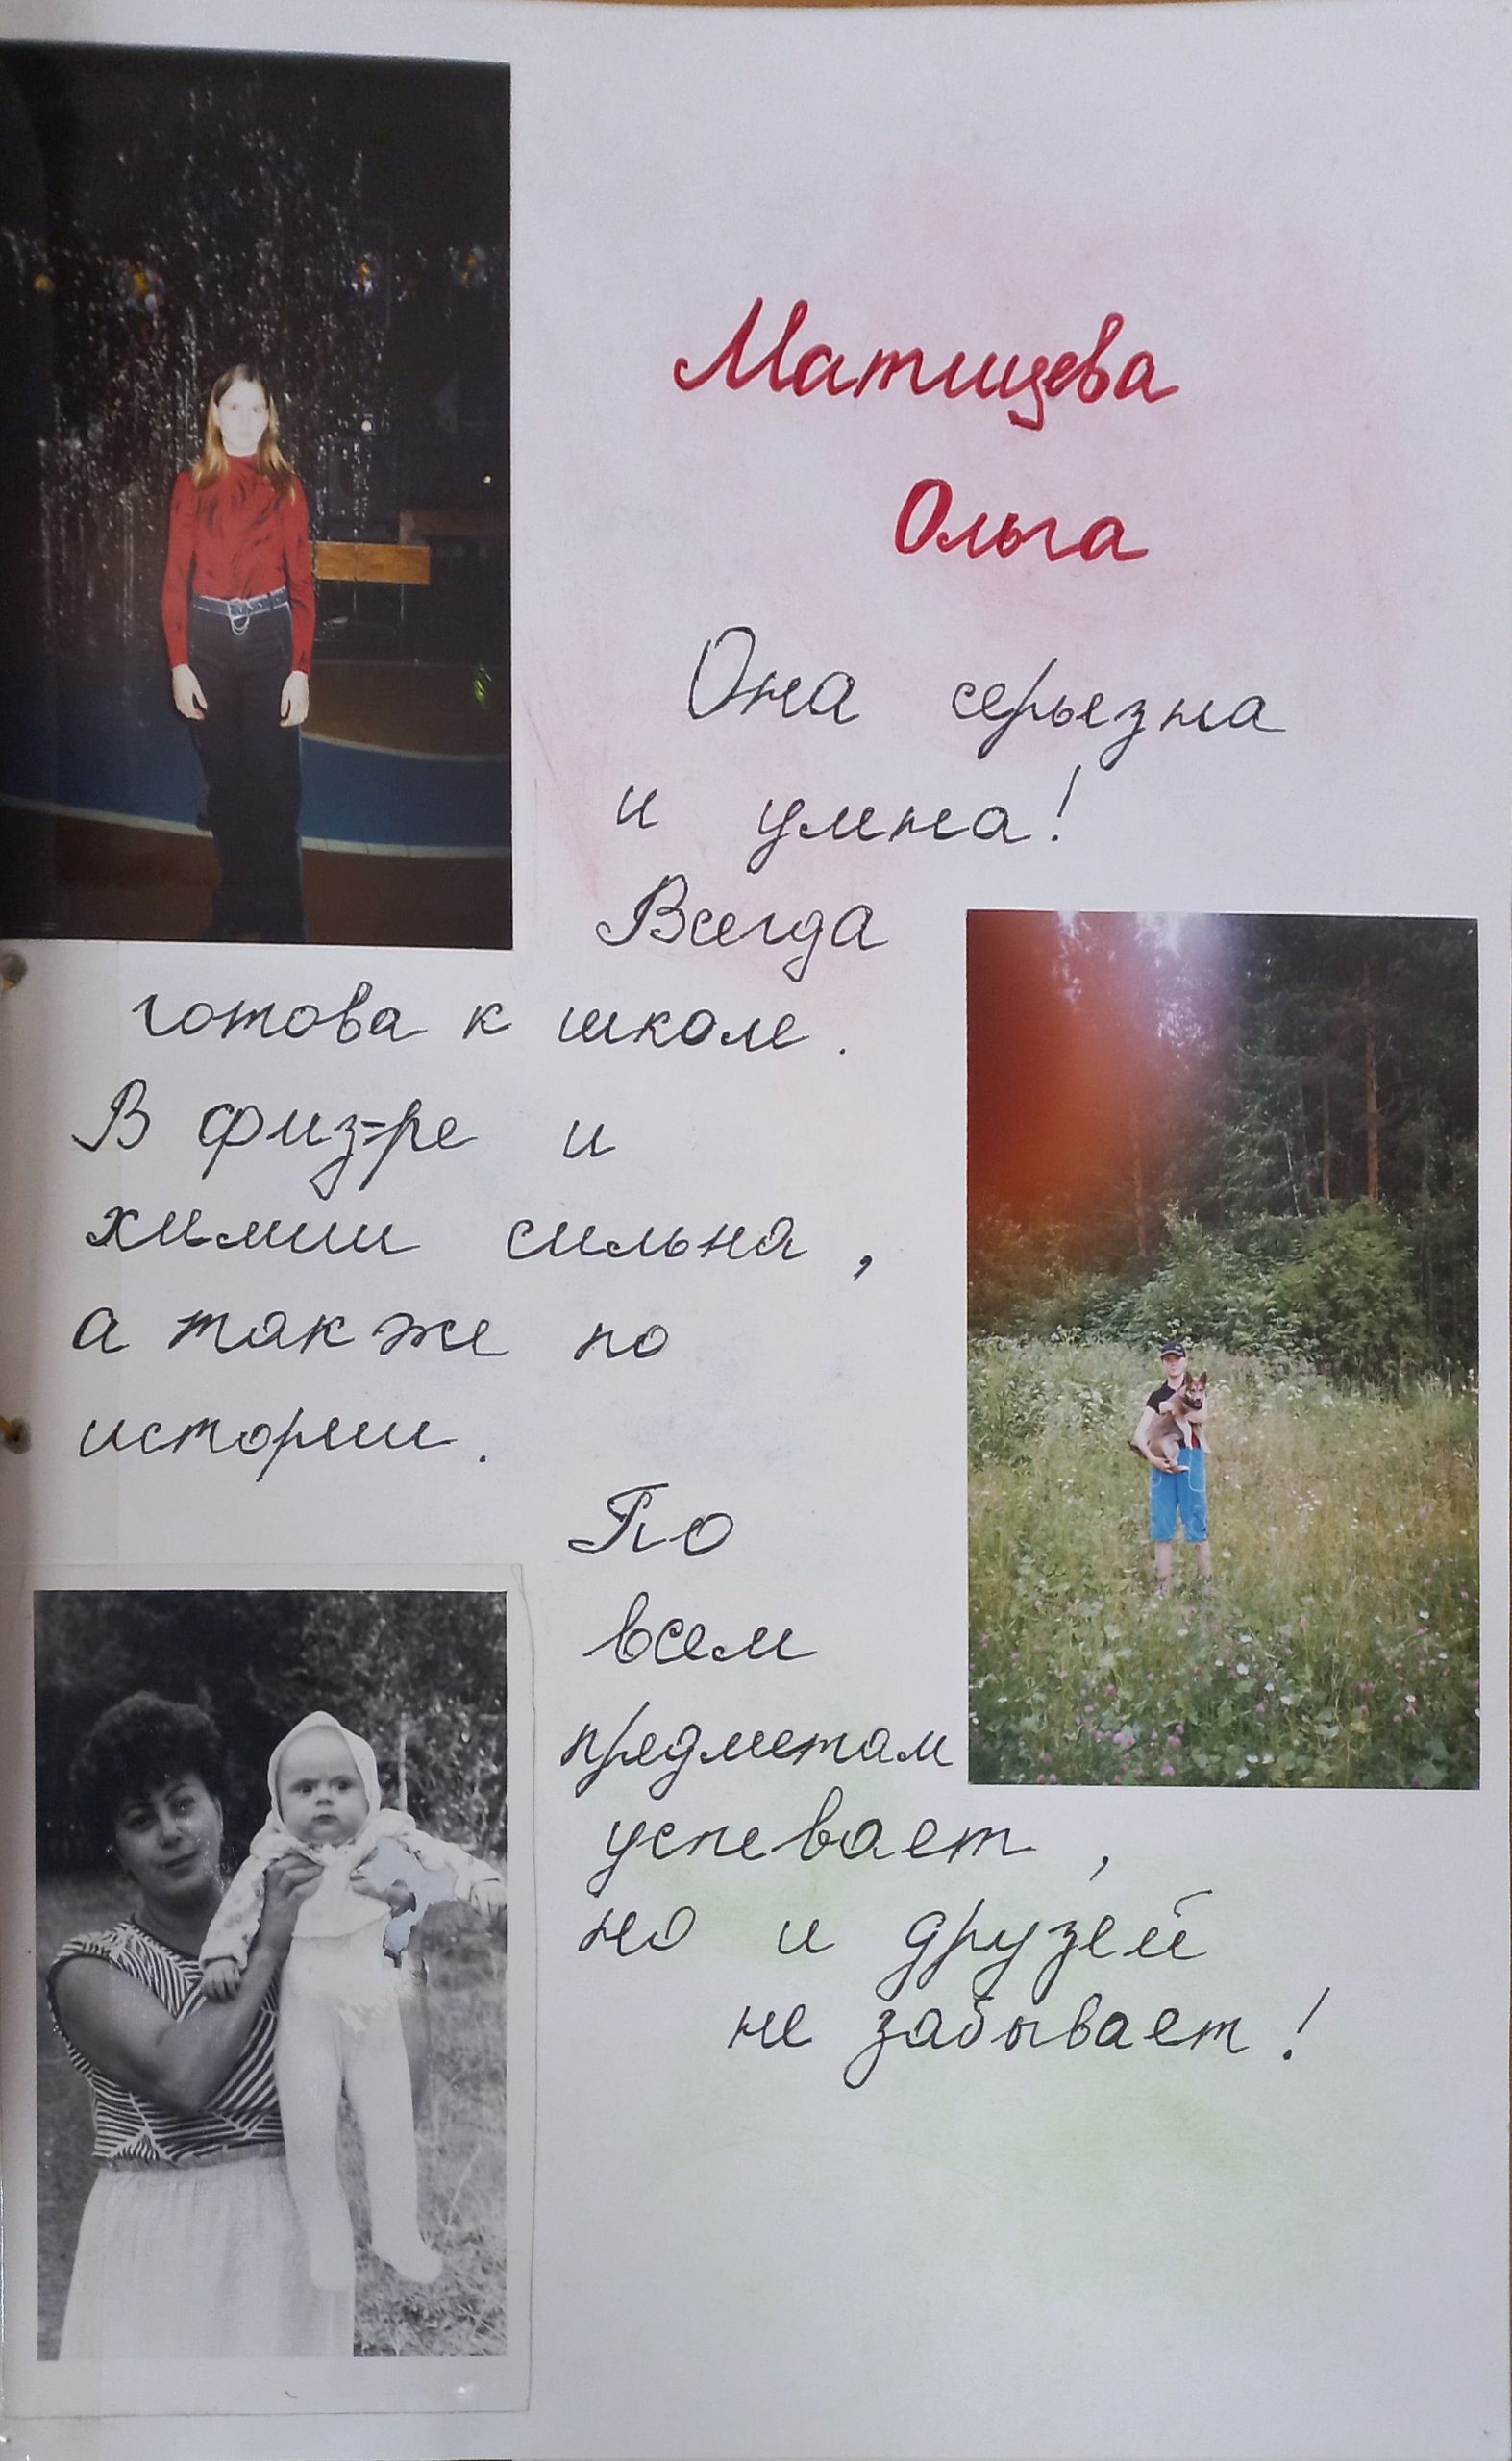 Матищева
Ольга
Она серьезна
и умна!
Всегда
готова к школе.
В физ-ре и
химии сильна,
а так же по
истории.
По
всем
предметам
успевает,
но и друзей
не забывает!